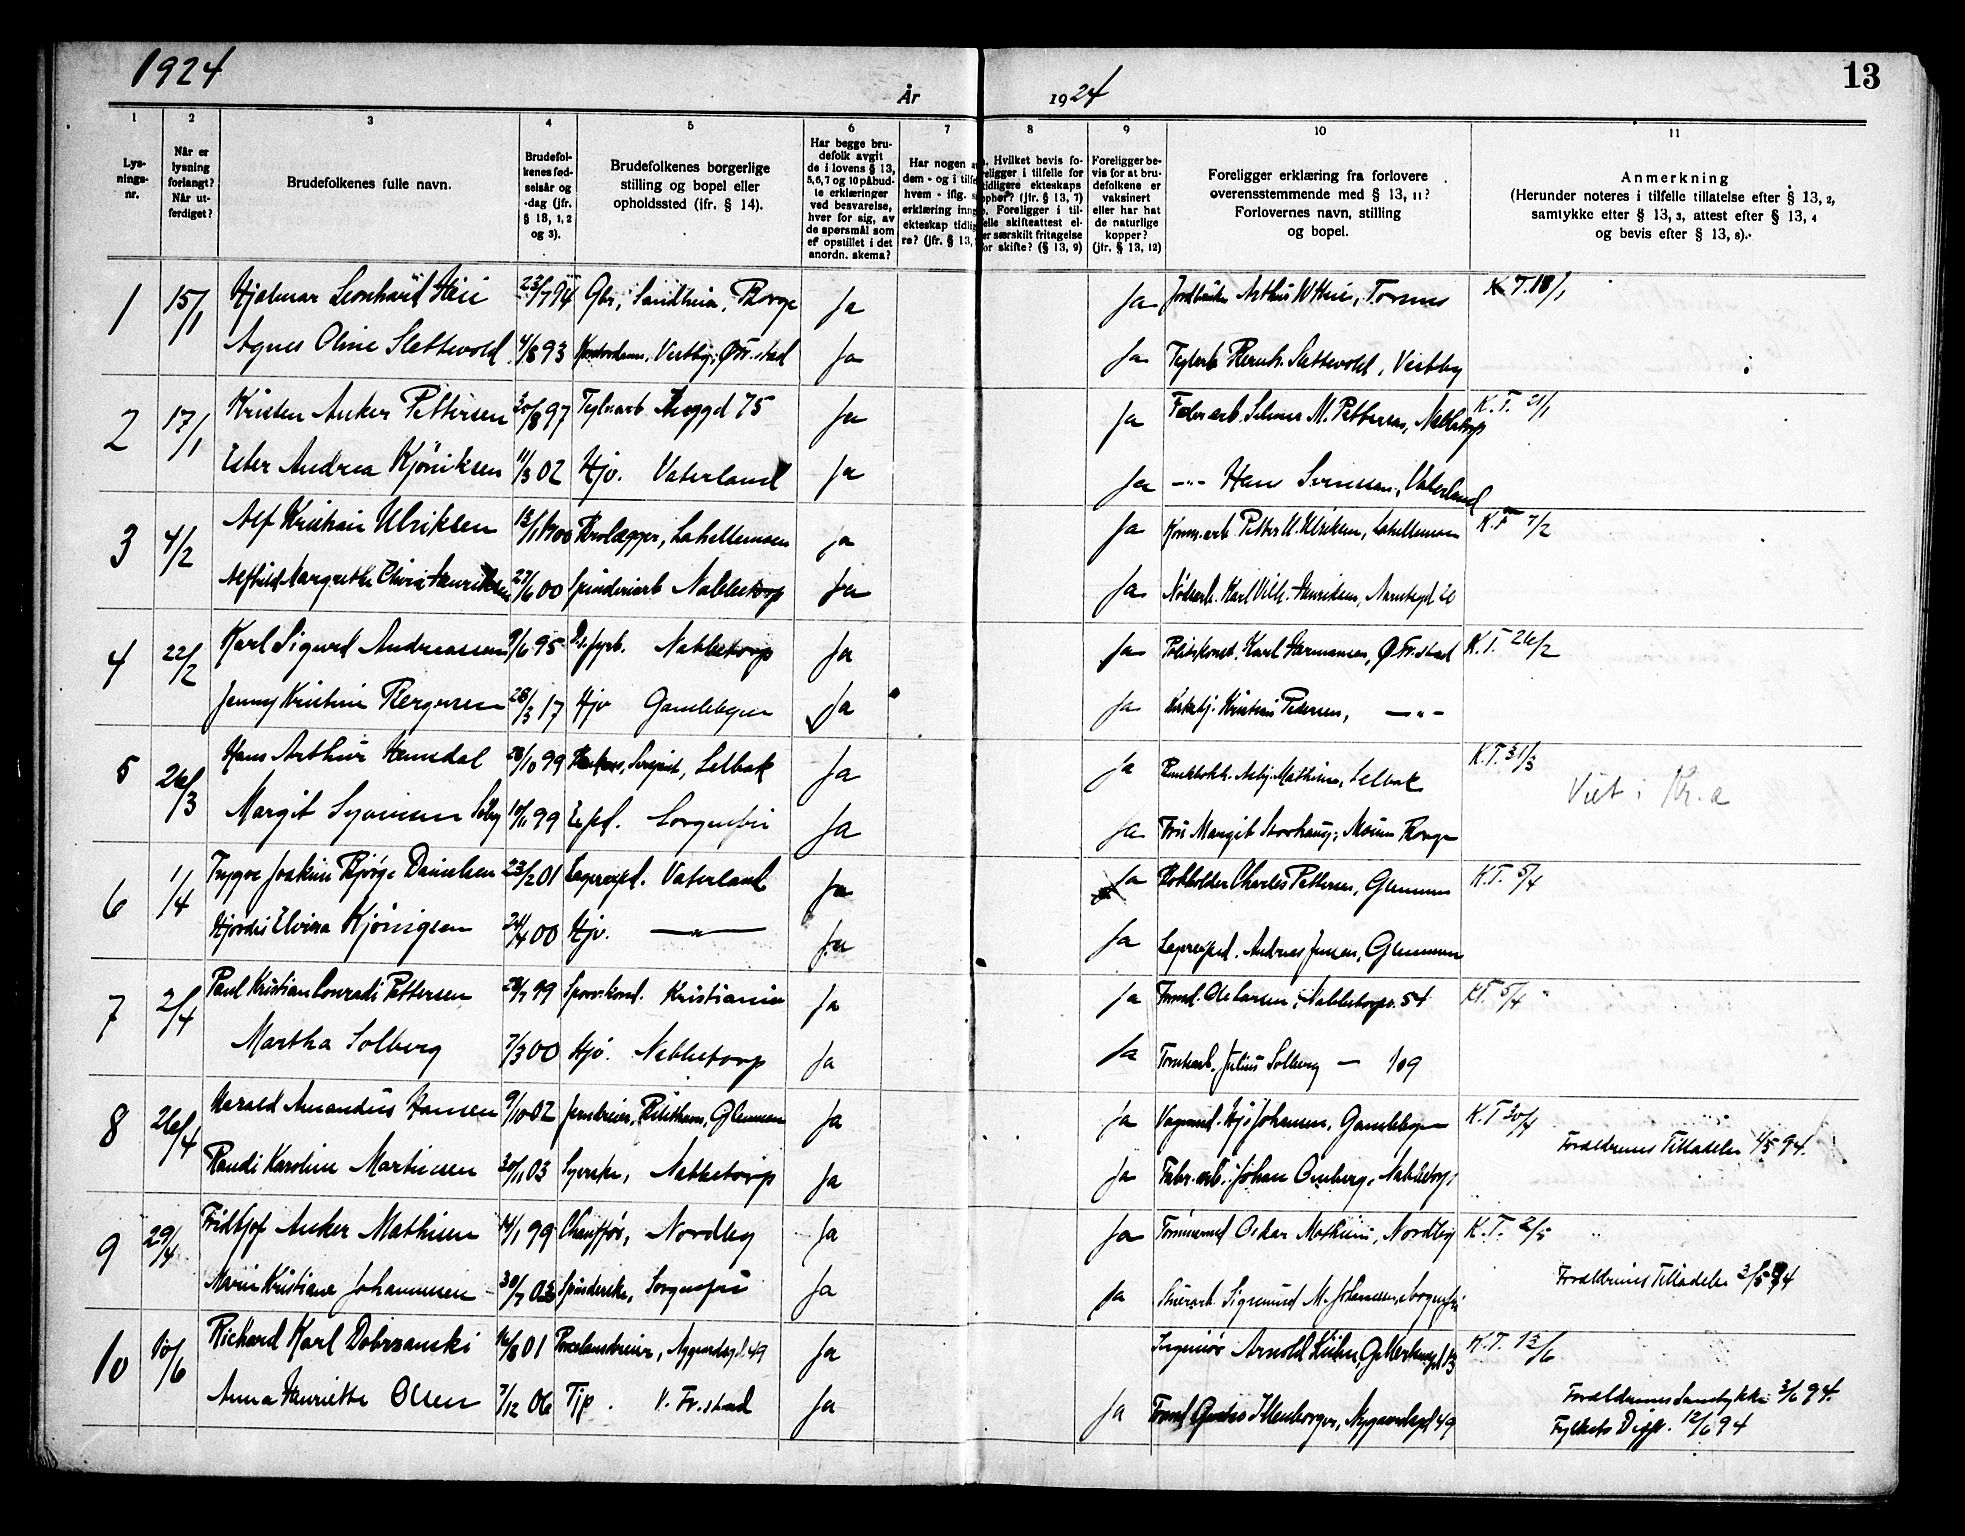 1924
År 1924
13
1 2 3 4 5 6 7 8 9 10 11
Lys-
nings-
nr.
Når er
lysning
forlangt?
Når ut-
ferdiget?
Brudefolkenes fulle navn.
Brudefol-
kenes fød-
selsår og
-dag (jfr.
§ 18, 1, 2
og 3).
Brudefolkenes borgerlige
stilling og bopel eller
opholdssted (ifr. § 14).
Har begge bru-
defolk avgit
de i lovens § 13,
5,6,7 og 10 påbud-
te erklæringer
ved besvarelse,
hver for sig, av
de spørsmål som
er opstillet i det
anordn. skema?
Har nogen
dem - og i tilfe
hvem - iflg.
erklæring inng
ekteskap tidlig
re? (jfr. § 13,
Hvilket bevis fo-
religger i tilfelle for
tidligere ekteskaps
ophør? (jfr. § 13, 7)
Foreligger i til-
felle skifteattest el-
er særskilt fritagelse
for skifte? (§ 13, 9)
Foreligger be-
vis for at bru-
defolkene er
vaksinert
eller har hat
de naturlige
kopper?
(jfr. § 13, 12)
Foreligger erklæring fra forlovere
overensstemmende med § 13, 11?
Forlovernes navn, stilling
og bopel.
Anmerkning
(Herunder noteres i tilfelle tillatelse efter § 13, 2,
samtykke efter § 13, 3, attest efter § 13, 4
og bevis efter § 13, 8).
1 15/1 Hjalmar Leonhard 23/7 94 Gbr., Sandheia, Borge Ja Ja Arthur W Torsnes K.T. 18/1
Agnes Oline Slettevold 4/8 93 Vestby, Ø Fr.stad Ja Ja Teglarb Bernh. Slettevold, Vestby
2 17/1 Kristen Anker Pettersen 30/8 97 Teglv.arb 75 Ja Ja M. Pettersen, Nabbetorp K.T. 21/1
Ester Andrea Kjøniksen 11/3 02 Hjv. Vaterland Ja Ja -"- Hans Svensson, Vaterland
3 4/2 Alf Kristian Ulriksen 00 Brolægger, Lahellemoen Ja Ja Petter Ulriksen, Lahellemoen 7/2
Alfhild Margrethe Henriksen 27/6 00 Spinderiarb Nabbetorp Ja Ja Karl Vilh. Henriksen, 20
4 22/2 Karl Sigurd Andreassen 9/6 95 Nabbetorp Ja Ja Politikonst. Karl Hermansen, Ø Fr.stad K.T. 26/2
Jenny Kristine Bergersen 28/3 17 Hjv Gamlebyen Ja Ja Kristian Pedersen, -"-
5 26/3 Hans Arthur Hemsdal 28/10 99 Selbak Ja Ja Mathisen, Selbak K.T. 31/3
Viet i Kr.a
Margit Syversen Solby 99 Exped. Sorgenfri Ja Ja Fru Margit Storhaug, Moum Borge
6 1/4 Trygve Joakim Bjørge Danielsen 23/2 01 Lagerexpd. Vaterland Ja Ja Bokholder Charles Pettersen, Glemmen K.T. 5/4
Hjørdis Elvira Kjønigsen 24/4 00 Hjv. —"— Ja Ja Lagerexpd. Andreas Jensen, Glemmen
7 2/4 Paul Kristian Conradi Pettersen 28/7 99 Sporv.kond. Kristiania Ja Ja Formd. Ole Larsen, Nabbetorpv. 54 K.T. 5/4
Martha Solberg 7/3 00 Hjv. Nabbetorp Ja Ja Tomtearb. Julius Solberg — 109
8 26/4 Harald Amandus Hansen 9/10 02 Jerndreier, Glemmen Ja Ja Johansen, Gamlebyen K.T. 30/4
Forældrenes Tilladelse 1/5 94.
Randi Karoline Martinsen 30/11 03 Syerske, Nabbetorp Ja Ja Fabr.arb. Johan Omberg, Nabbetorp
9 29/4 Fridtjof Anker Mathisen 14/1 99 Chauffør, Nordby Ja Ja Tømmermd Oskar Mathisen, Nordby K.T. 2/5
Forældrenes Tilladelse 3/5 94
Marie Kristiane Johannessen 30/7 03 Spinderske, Sorgenfri Ja Ja Sigismund M. Johannessen, Sorgenfri
10 10/6 Richard Karl Dobrzanski 16/8 01 Porcelænsdreier, Nygaardsgd. 49 Ja Ingeniør Arnold Kühn, K.T. 13/6
Forældrenes Samtykke 3/6 94.
Anna Henriette Olsen 7/12 06 Tjp. V. Fr.stad Ja Ja Formd Nygaardsgd 49
Fylkets Disp. 12/6 94